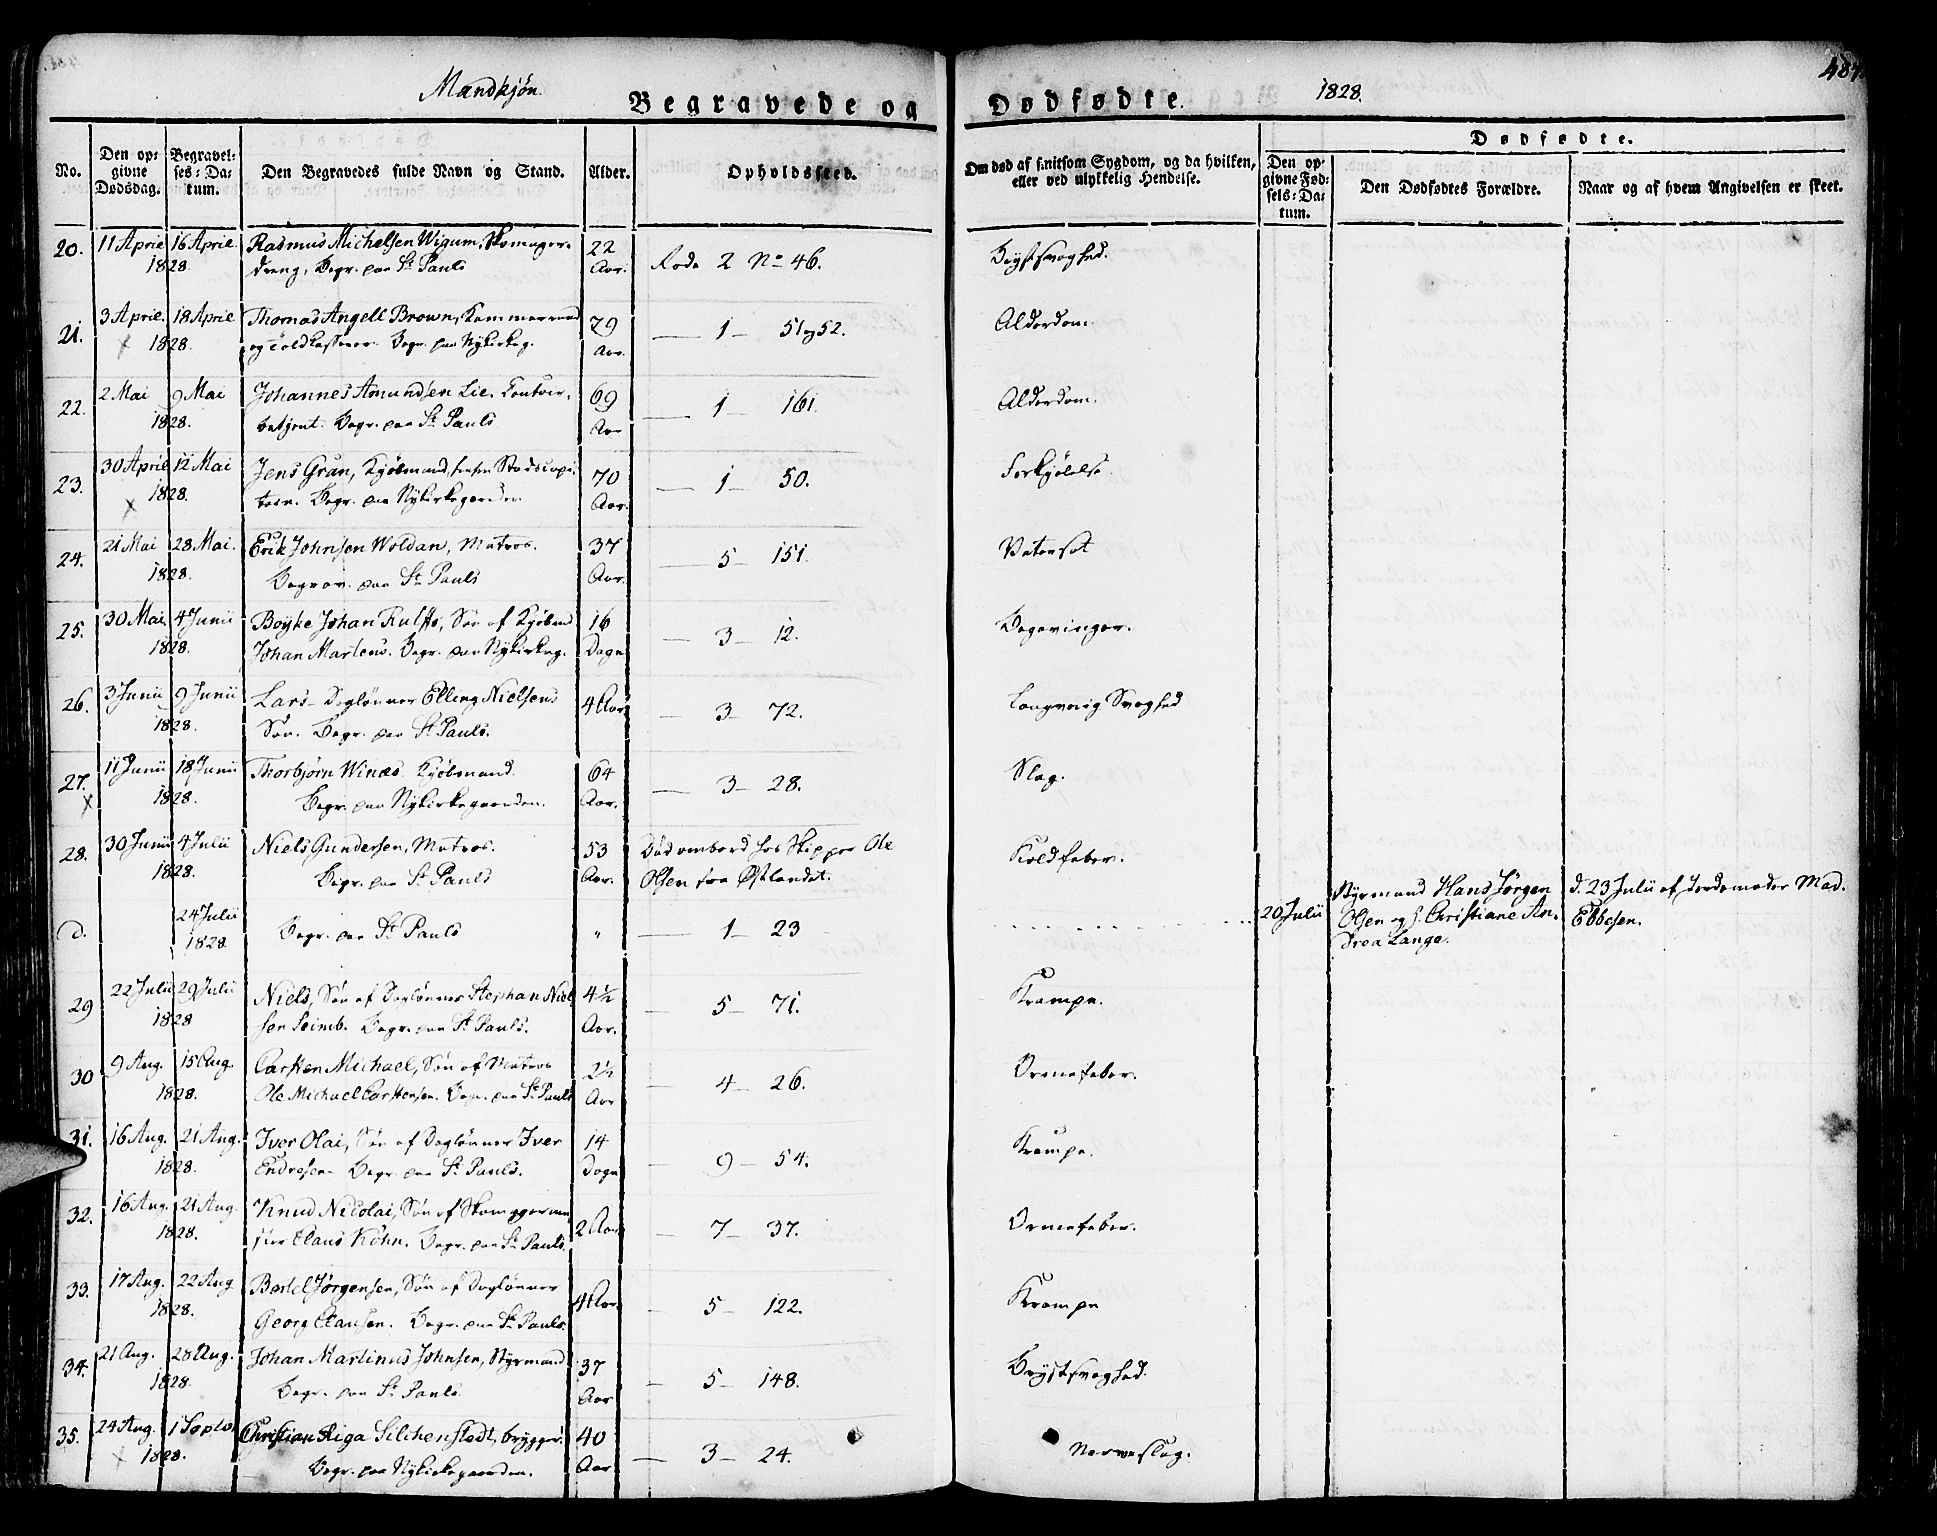 Mandkjøn.
Begravede og Dødfødte. 1828. 487.
No.
Den opgivne Dødsdag.
Begravelses-Datum.
Den Begravedes fulde Navn og Stand.
Alder.
Opholdssted.
Om død af smitsom Sygdom, og da hvilken, eller ved ulykkelig Hendelse.
Dødfødte.
Den opgivne Fødsels-Datum.
Den Dødfødtes Forældre.
Naar og af hvem Angivelsen er skeet.
20. 11 April 16 April Rasmus Michelsen Wigum, Skomager- 22 Rode 2 No 46. Brystsvaghed.
1828. dreng, Begr. paa St Pauls Aar.
21. 3 April. 18 April Thomas Angell Brown, Kammerraad 79 — 1 — 51 og 52. Alderdom.
1828. og Toldkasserer. Begr. paa Nykirkeg. Aar.
22. 2 Mai 9 Mai Johannes Amundsen Lie. Contoir- 69 — 1 — 161. Alderdom.
1828. betjent. Begr. paa St Pauls Aar
23. 30 April 12 Mai Jens Gran, Kjøbmand, forhen Stadscapi- 70 — 1 — 50. Forkjølelse.
1828. tain. Begr. paa Nykirkegaarden Aar.
24. 21 Mai 28 Mai. Erik Johnsen Woldan, Matros. 37 — 5 — 151. Vatersot
1828. Begrav. paa St Pauls Aar.
25. 30 Mai 4 Junii Boyke Johan Rulffs, Søn af Kjøbmd 16 — 3 — 12. Begevinger.
1828. Johan Martens. Begr. paa Nykirkeg. Dage
26. 3 Junii 9 Junii Lars — Daglønner Elling Nielsens 4 Aar — 3 — 72. Langvarig Svaghed
1828. Søn. Begr. paa St Pauls.
27. 11 Junii 18 Junii Thorbjørn Winæs Kjøbmand. 64 — 3 — 28. Slag.
1828. Begr. paa Nykirkegaarden. Aar.
28. 30 Junii 4 Julii Niels Gundersen, Matros. 53 Død ombord hos Skipper Ole Koldfeber.
1828. Begr. paa St Pauls Aar. Olsen fra Østlandet.
D. 24 Julii Begr. paa St Pauls " — 1 — 23 20 Julii Styrmand Hans Jørgen d. 23 Julii af Jordemoder Mad.
1828. Olsen og H. Christiane An- Ebbesen.
drea Lange.
29 22 Julii 29 Julii Niels, Søn af Daglønner Stephan Niel- 4½ — 5 — 71. Krampe.
1828 sen Seimb. Begr. paa St Pauls. Aar.
30 9 Aug. 15 Aug. Carsten Michael, Søn af Matros 2½ — 4 — 26. Ormefeber.
1828. Ole Michael Carstensen. Begr. paa St Pauls Aar
31. 16 Aug. 21 Aug. Iver Olai, Søn af Daglønner Iver 14 — 9 — 54. Krampe.
1828. Endresen — Begr. paa St Pauls. Dage
32. 16 Aug. 21 Aug. Knud Nicolai, Søn af Skomagerme- 2 Aar — 7 — 37. Ormefeber.
1828. ster Claus Köhn. Begr. paa St Pauls.
33. 17 Aug. 22 Aug Bertel Jørgensen, Søn af Daglønner 4 Aar. — 5 — 122. Krampe
1828. Georg Clausen. Begr. paa St Pauls.
34. 21 Aug. 28 Aug. Johan Martinus Johnsen, Styrmand 37 — 5 — 148. Brystsvaghed.
1828. Begr. paa St Pauls Aar
35. 24 Aug. 1 Septbr Christian Riga Silchenstedt, brygger. 40 — 3 — 24. Nerveslag.
1828. Begr. paa Nykirkegaarden. Aar